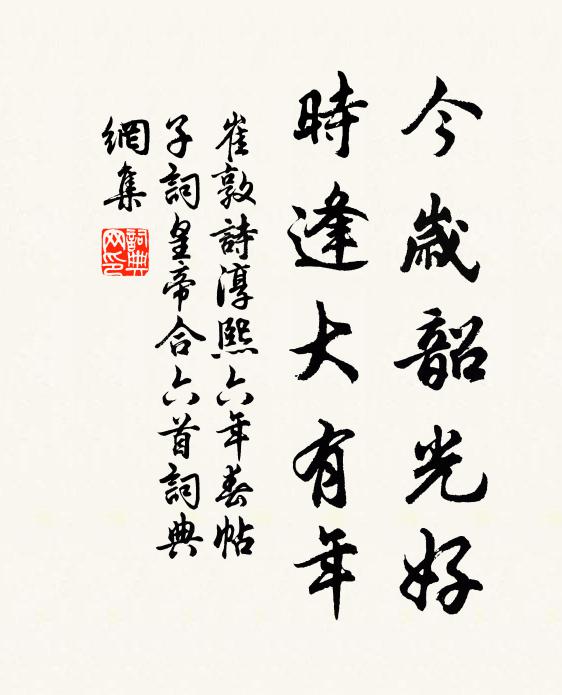 今歲韶光好
時逢大有年
崔敦詩淳熙六年春帖
子詞皇帝合六首詞典
網集
詞典網印